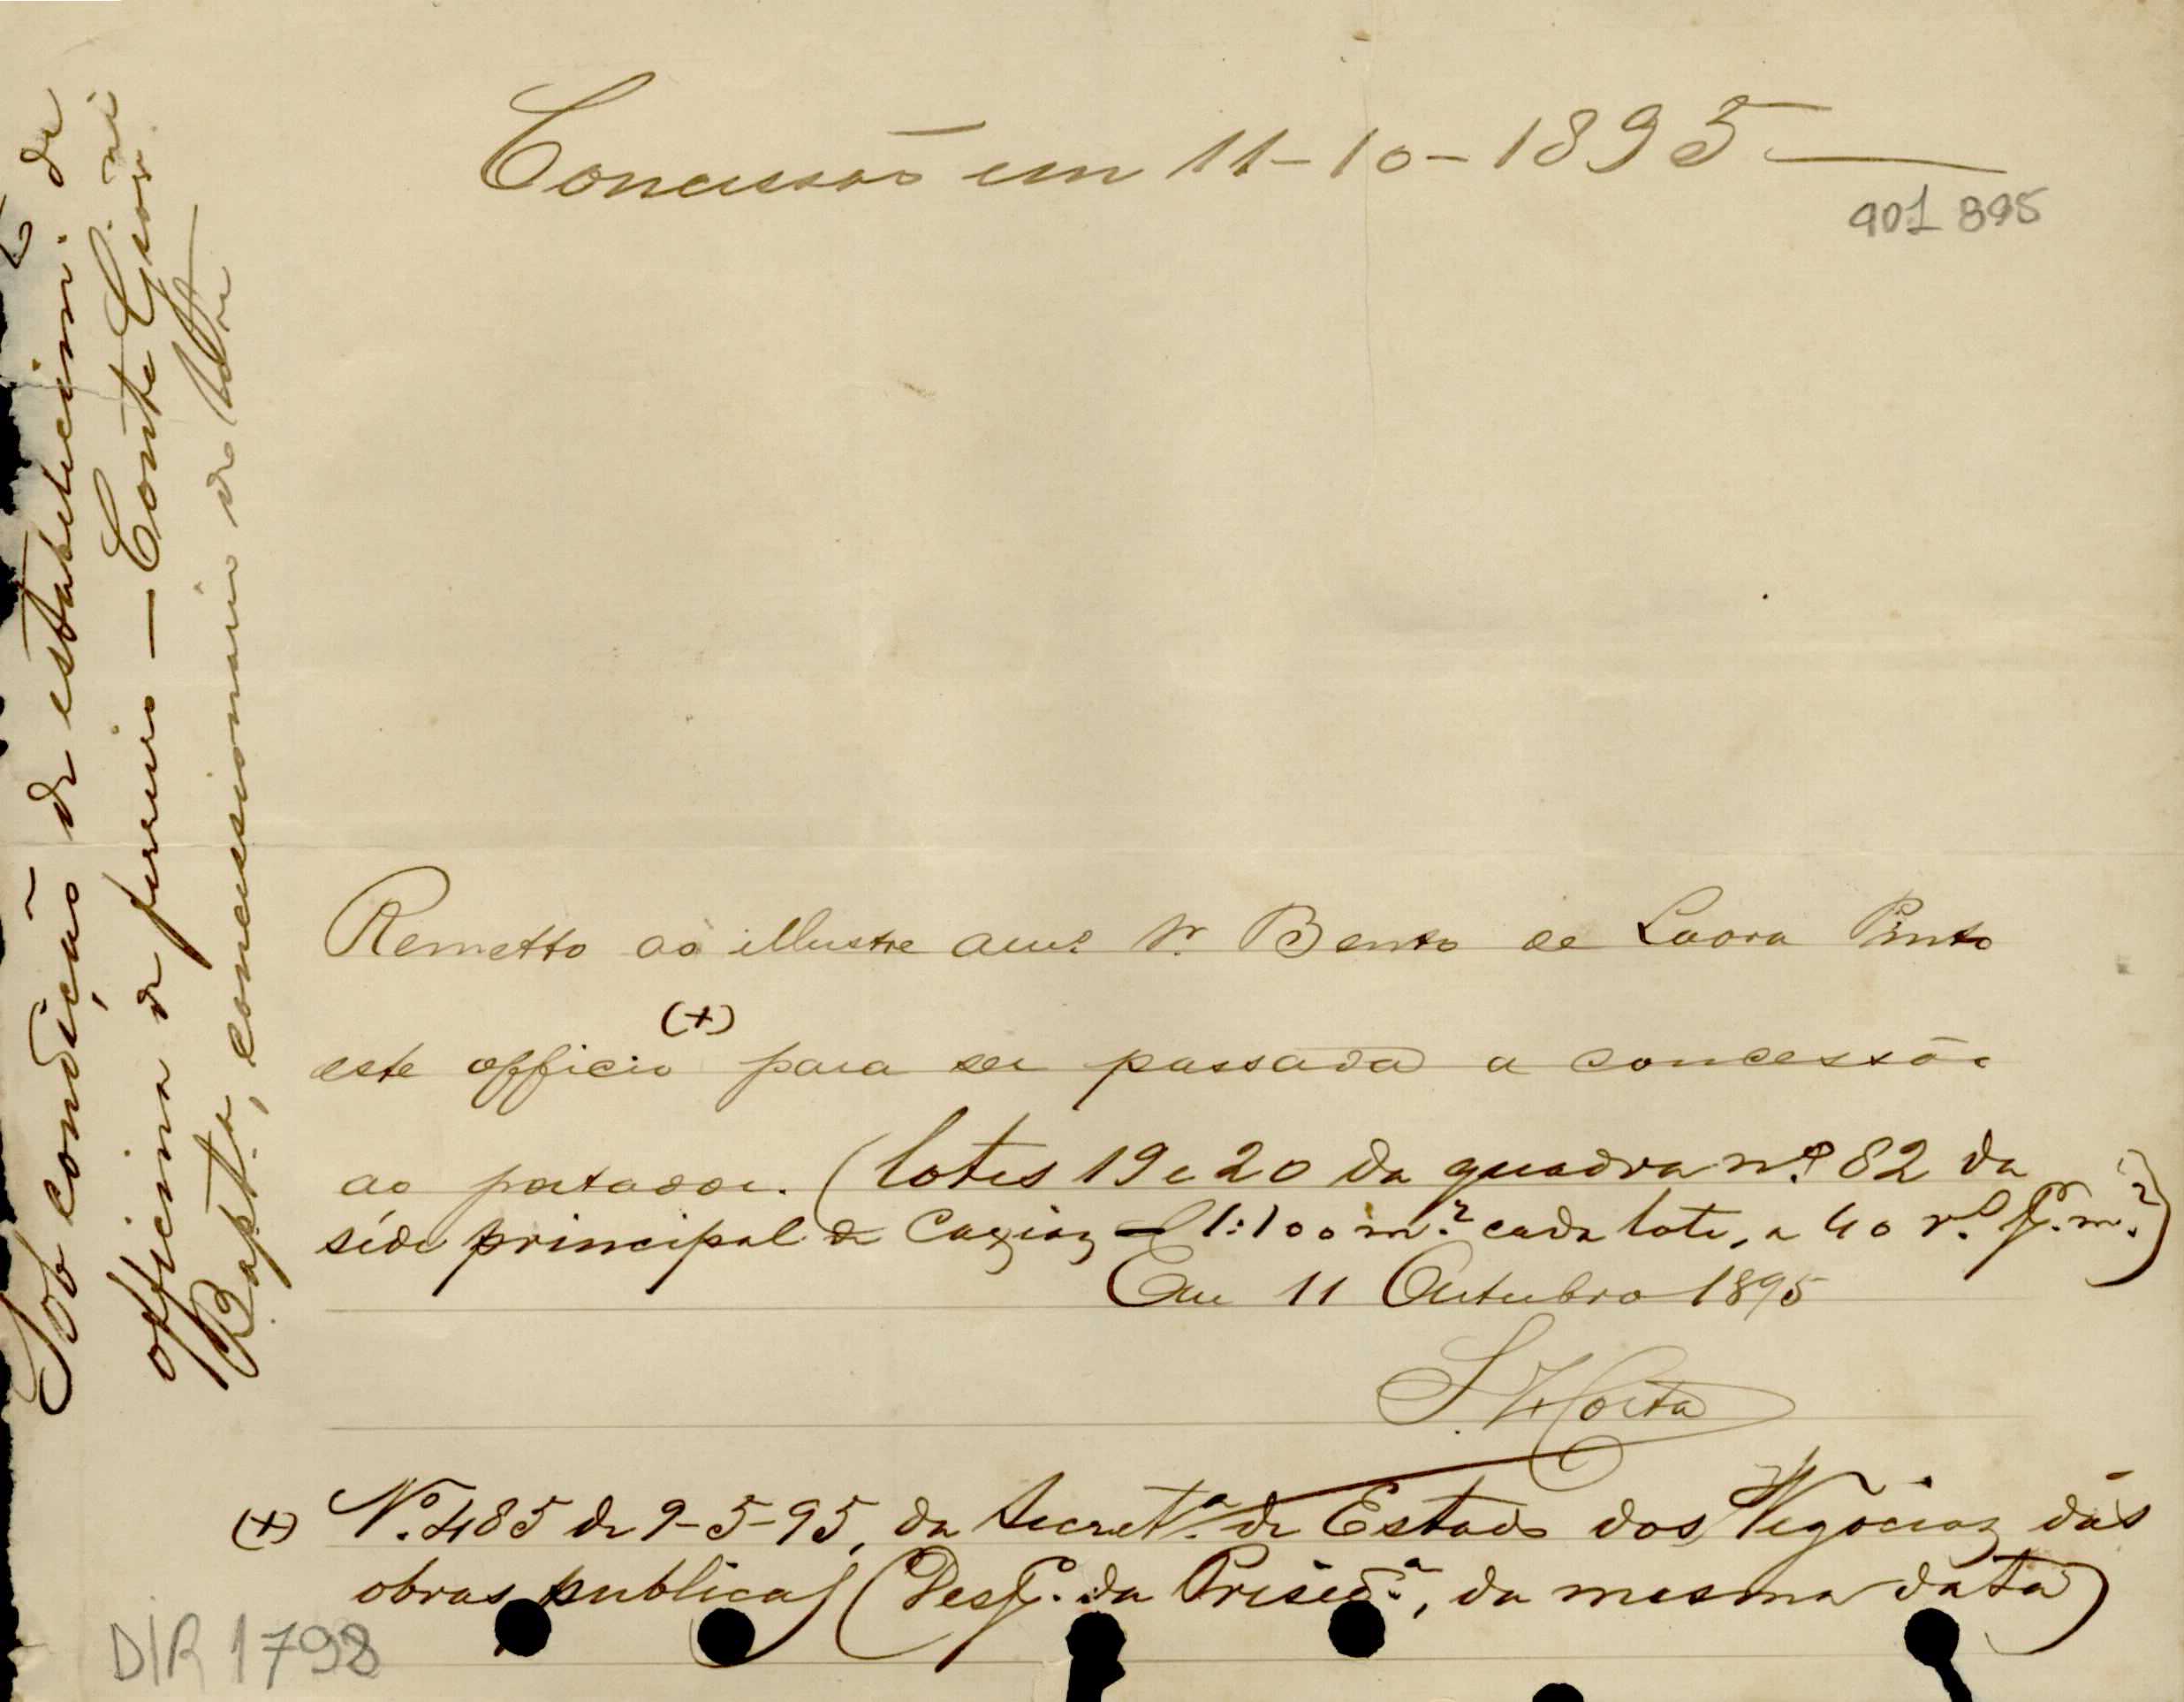 Concessão em 11-10-1895
901 895
Sob condição de estabelecim. de
officina de ferreiro — Conte Giovani
Bapt.ª, concessionario de
Remetto ao illustre amº Sr. Bento de Lavra Pinto
(+)
este officio para ser passada a concessão
ao portador. (lotes 19 e 20 da quadra nº 82 da
séde principal de Caxias 1:100 m.² cada lote, a 40 r.s p. m.²)
Em 11 Outubro 1895
S. Horta
(+) Nº. 485 de 9-5-95, da Secret.ª de Estado dos Negocios das
obras publicas (Desp. da Presid.ª, da mesma data)
DIR 1798